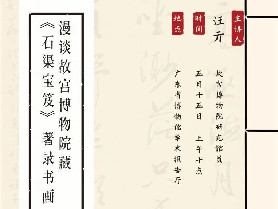 主讲人
汪亓
故宫博物院研究馆员
时间
五月十五日 上午十点
地点
广东省博物馆学术报告厅
漫谈故宫博物院藏
《石渠宝笈》著录书画